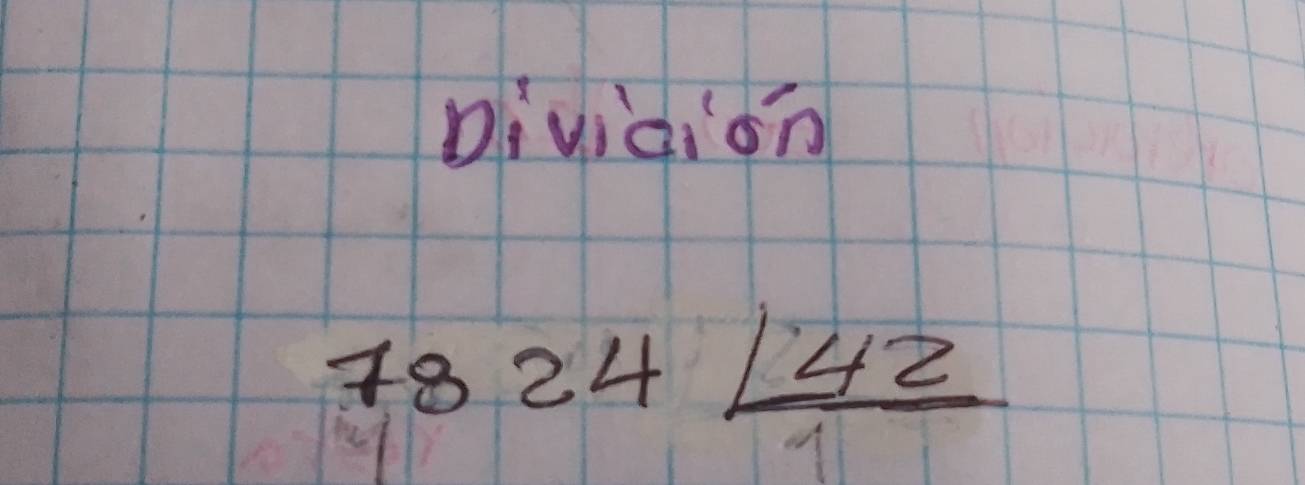 División
7824 42
1